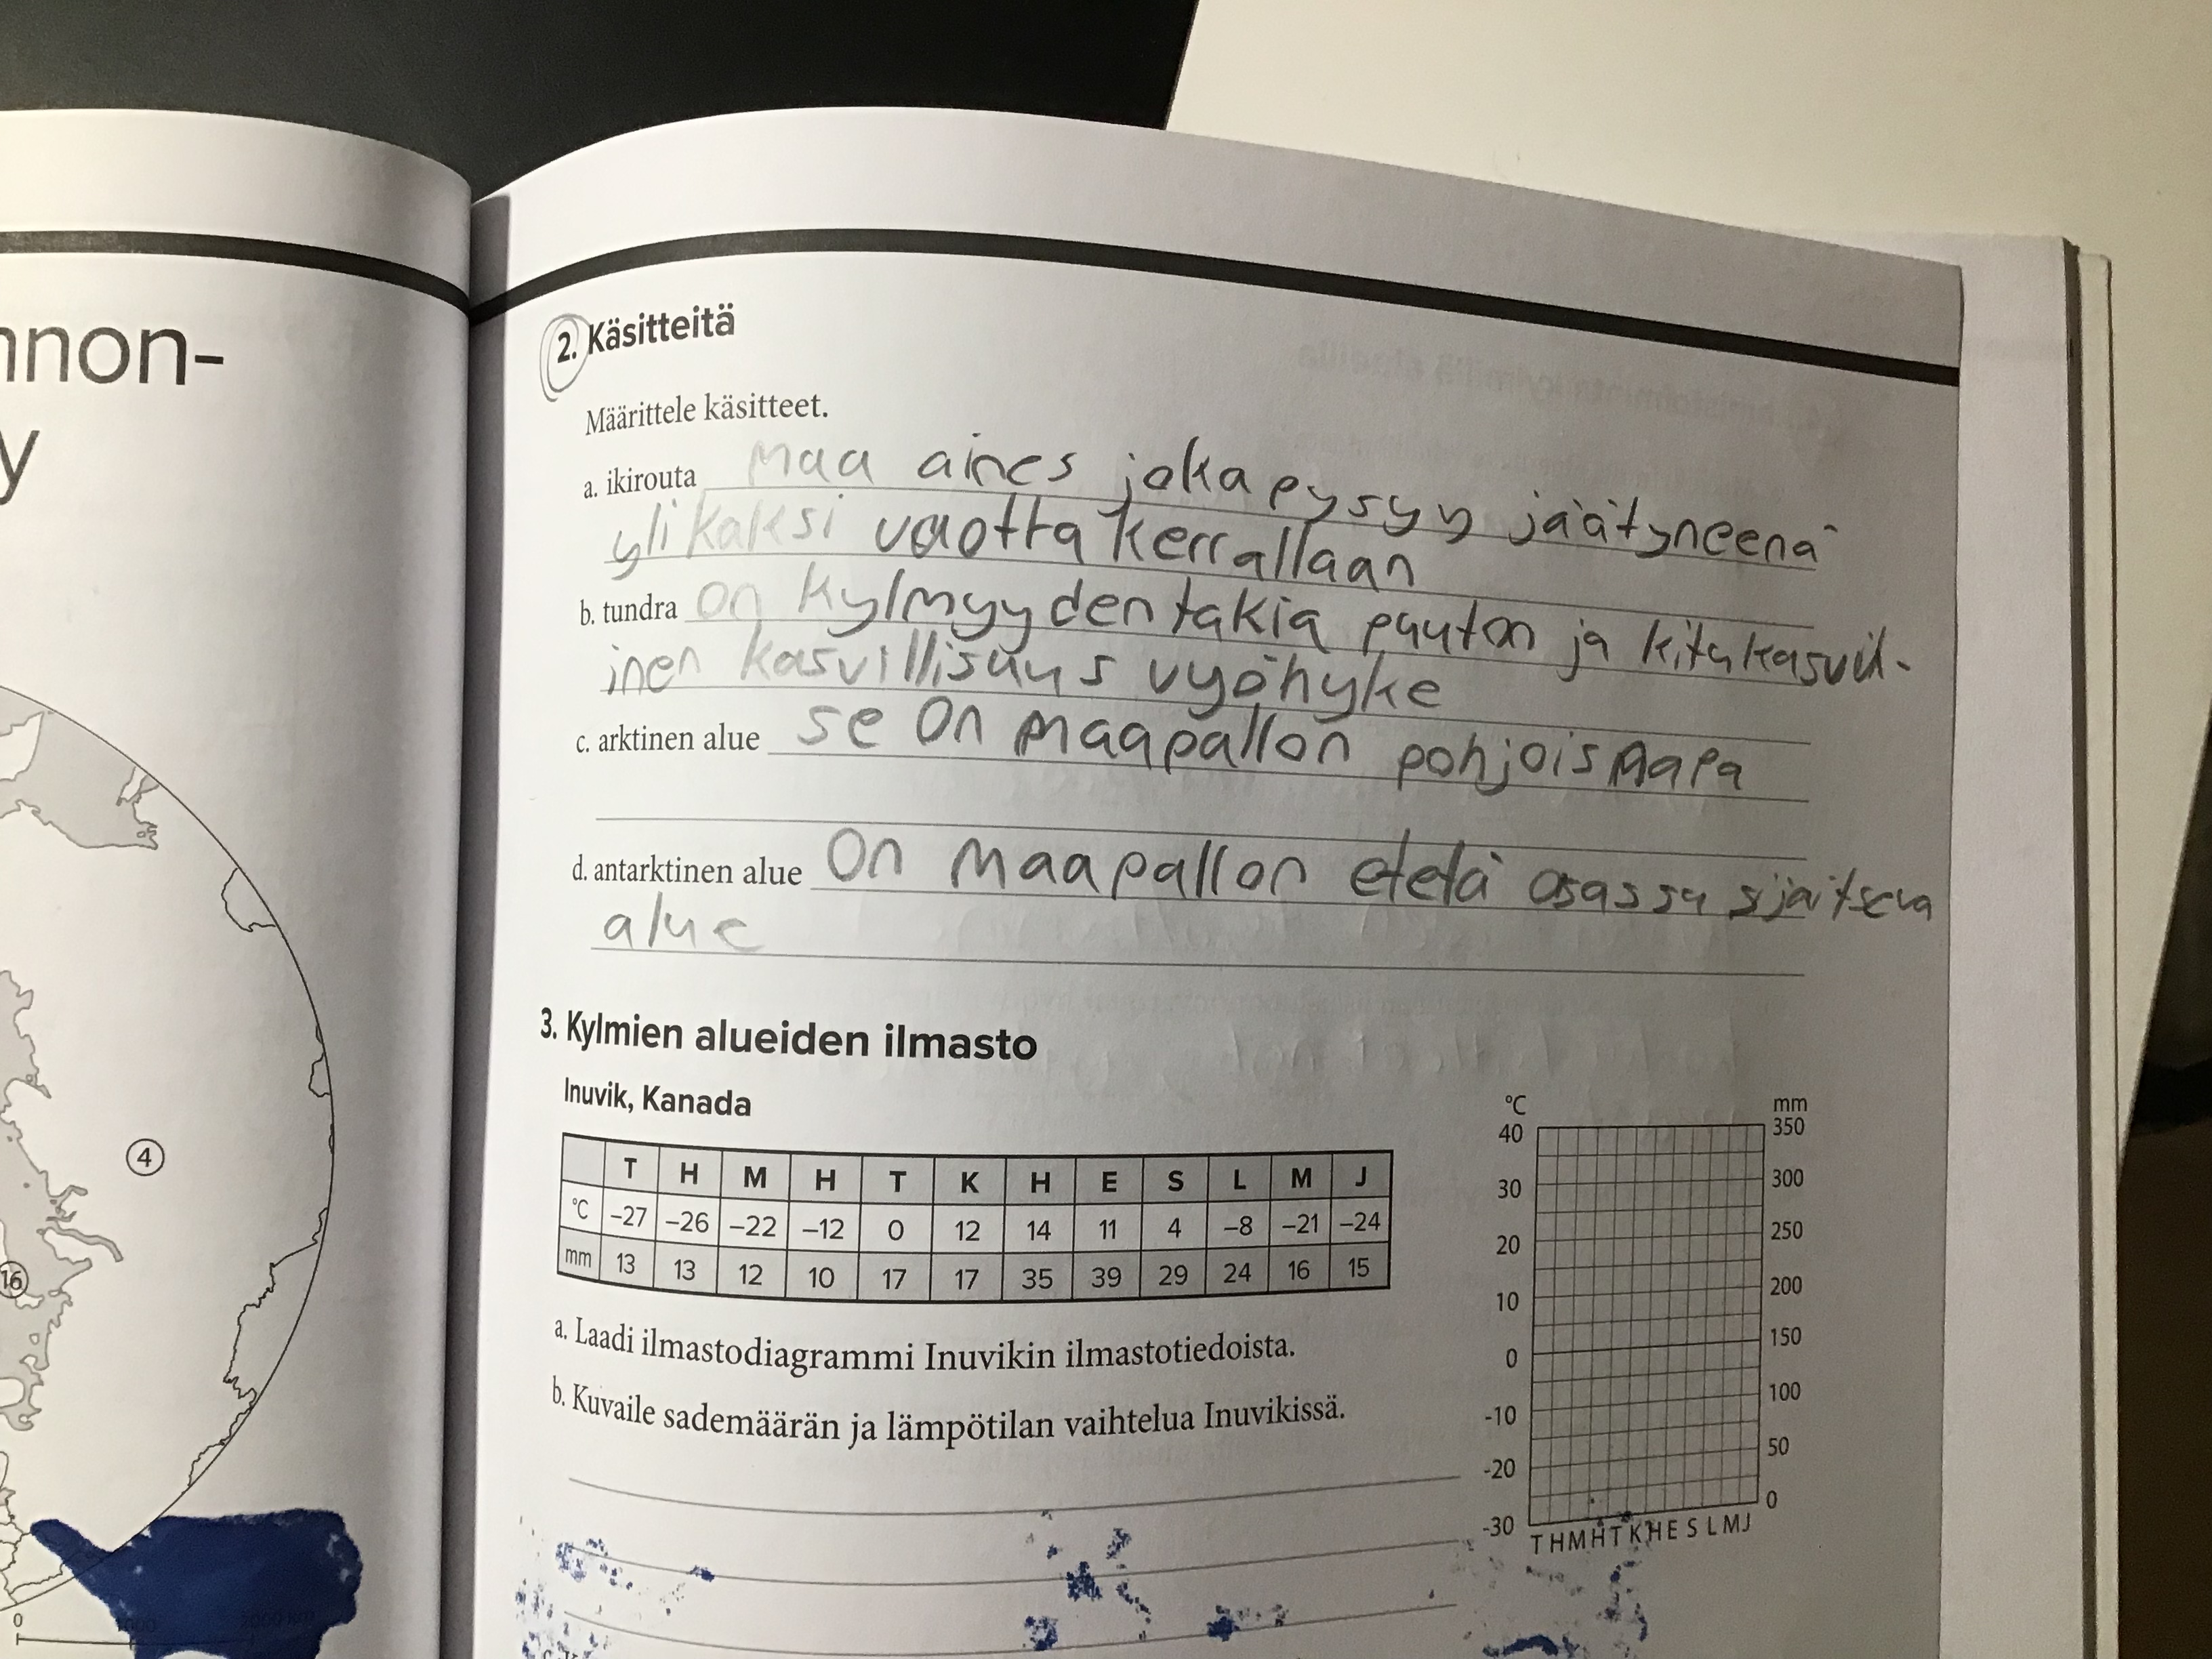 nnon-
y
4
16
0 1000 2000 km
2. Käsitteitä
Määrittele käsitteet.
a. ikirouta maa aines joka pysyy jäätyneenä
yli kaksi vuotta kerrallaan
b. tundra on kylmyyden takia puuton ja kitukasvil-
inen kasvillisuus vyöhyke
c. arktinen alue se on maapallon pohjoisnapa
d. antarktinen alue on maapallon etelä osassa sijaitseva
alue
3. Kylmien alueiden ilmasto
Inuvik, Kanada
T H M H T K H E S L M J
°C −27 −26 −22 −12 0 12 14 11 4 −8 −21 −24
mm 13 13 12 10 17 17 35 39 29 24 16 15
a. Laadi ilmastodiagrammi Inuvikin ilmastotiedoista.
b. Kuvaile sademäärän ja lämpötilan vaihtelua Inuvikissä.
°C mm
40 350
30 300
20 250
10 200
0 150
-10 100
-20 50
-30 0
T H M H T K H E S L M J